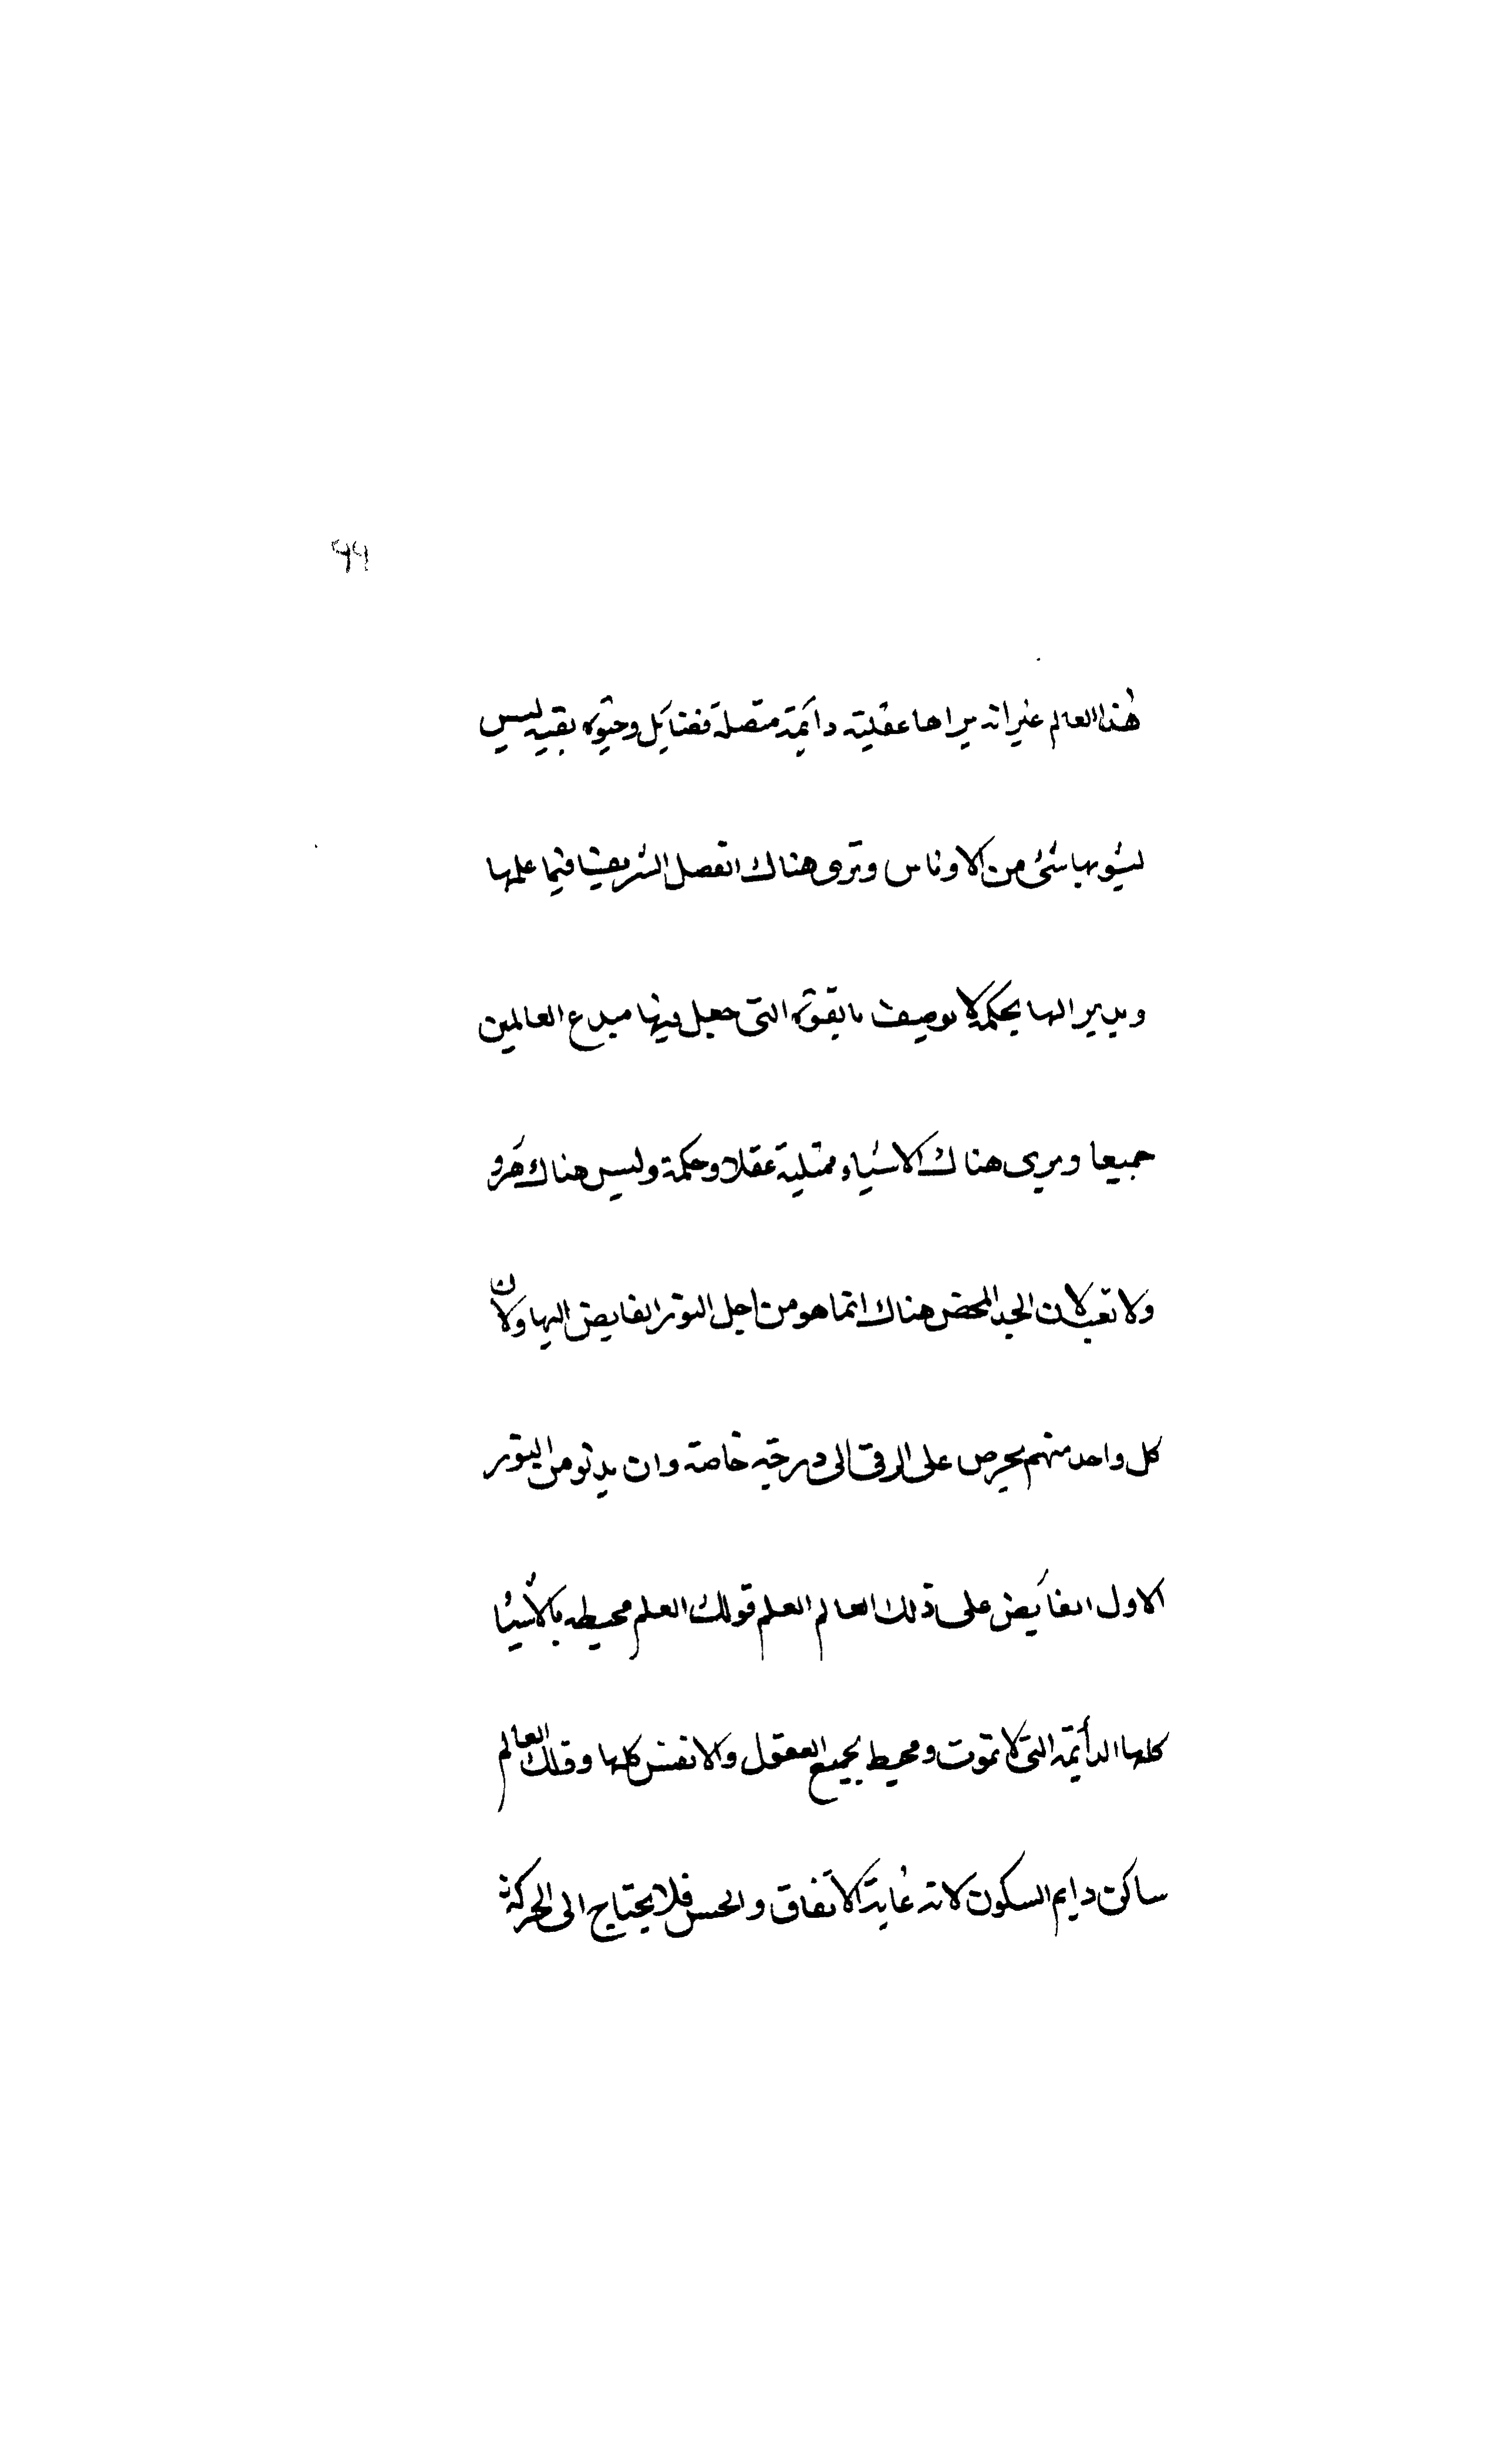 ٩٩
هٰذا العالم غير انه يراها عقلية دائمة متصلة فضائل وحيٰوة بقيه ليس
ليشوبها شئ من الاوناس وترى هناك العضل الشريف فيما علمها
ويدير الها بحكمة لا توصف بالقوة التى جعل فيها مبدع العالمين
جميعا ويرى هناك الاشياء ممتلية عقلا وحكمة وليس هناك هزو
ولا تعب لان الجد المحض هناك انما هو من اجل النور الفايض اليها ولان
كل واحد منهم يحرص على الرقى الى درجة خاصة وان يدنو من النور
الاول الفائض على ذلك العالم العلم قولك العلم محيطه بالأشيا
كلها الدائمة التى لا تموت ومحيط بجميع العقول والانفس كلها وقلك العالم
ساكن دايم السكون لانه غاية الاتفاق والحسن فلا يحتاج الى الحركة